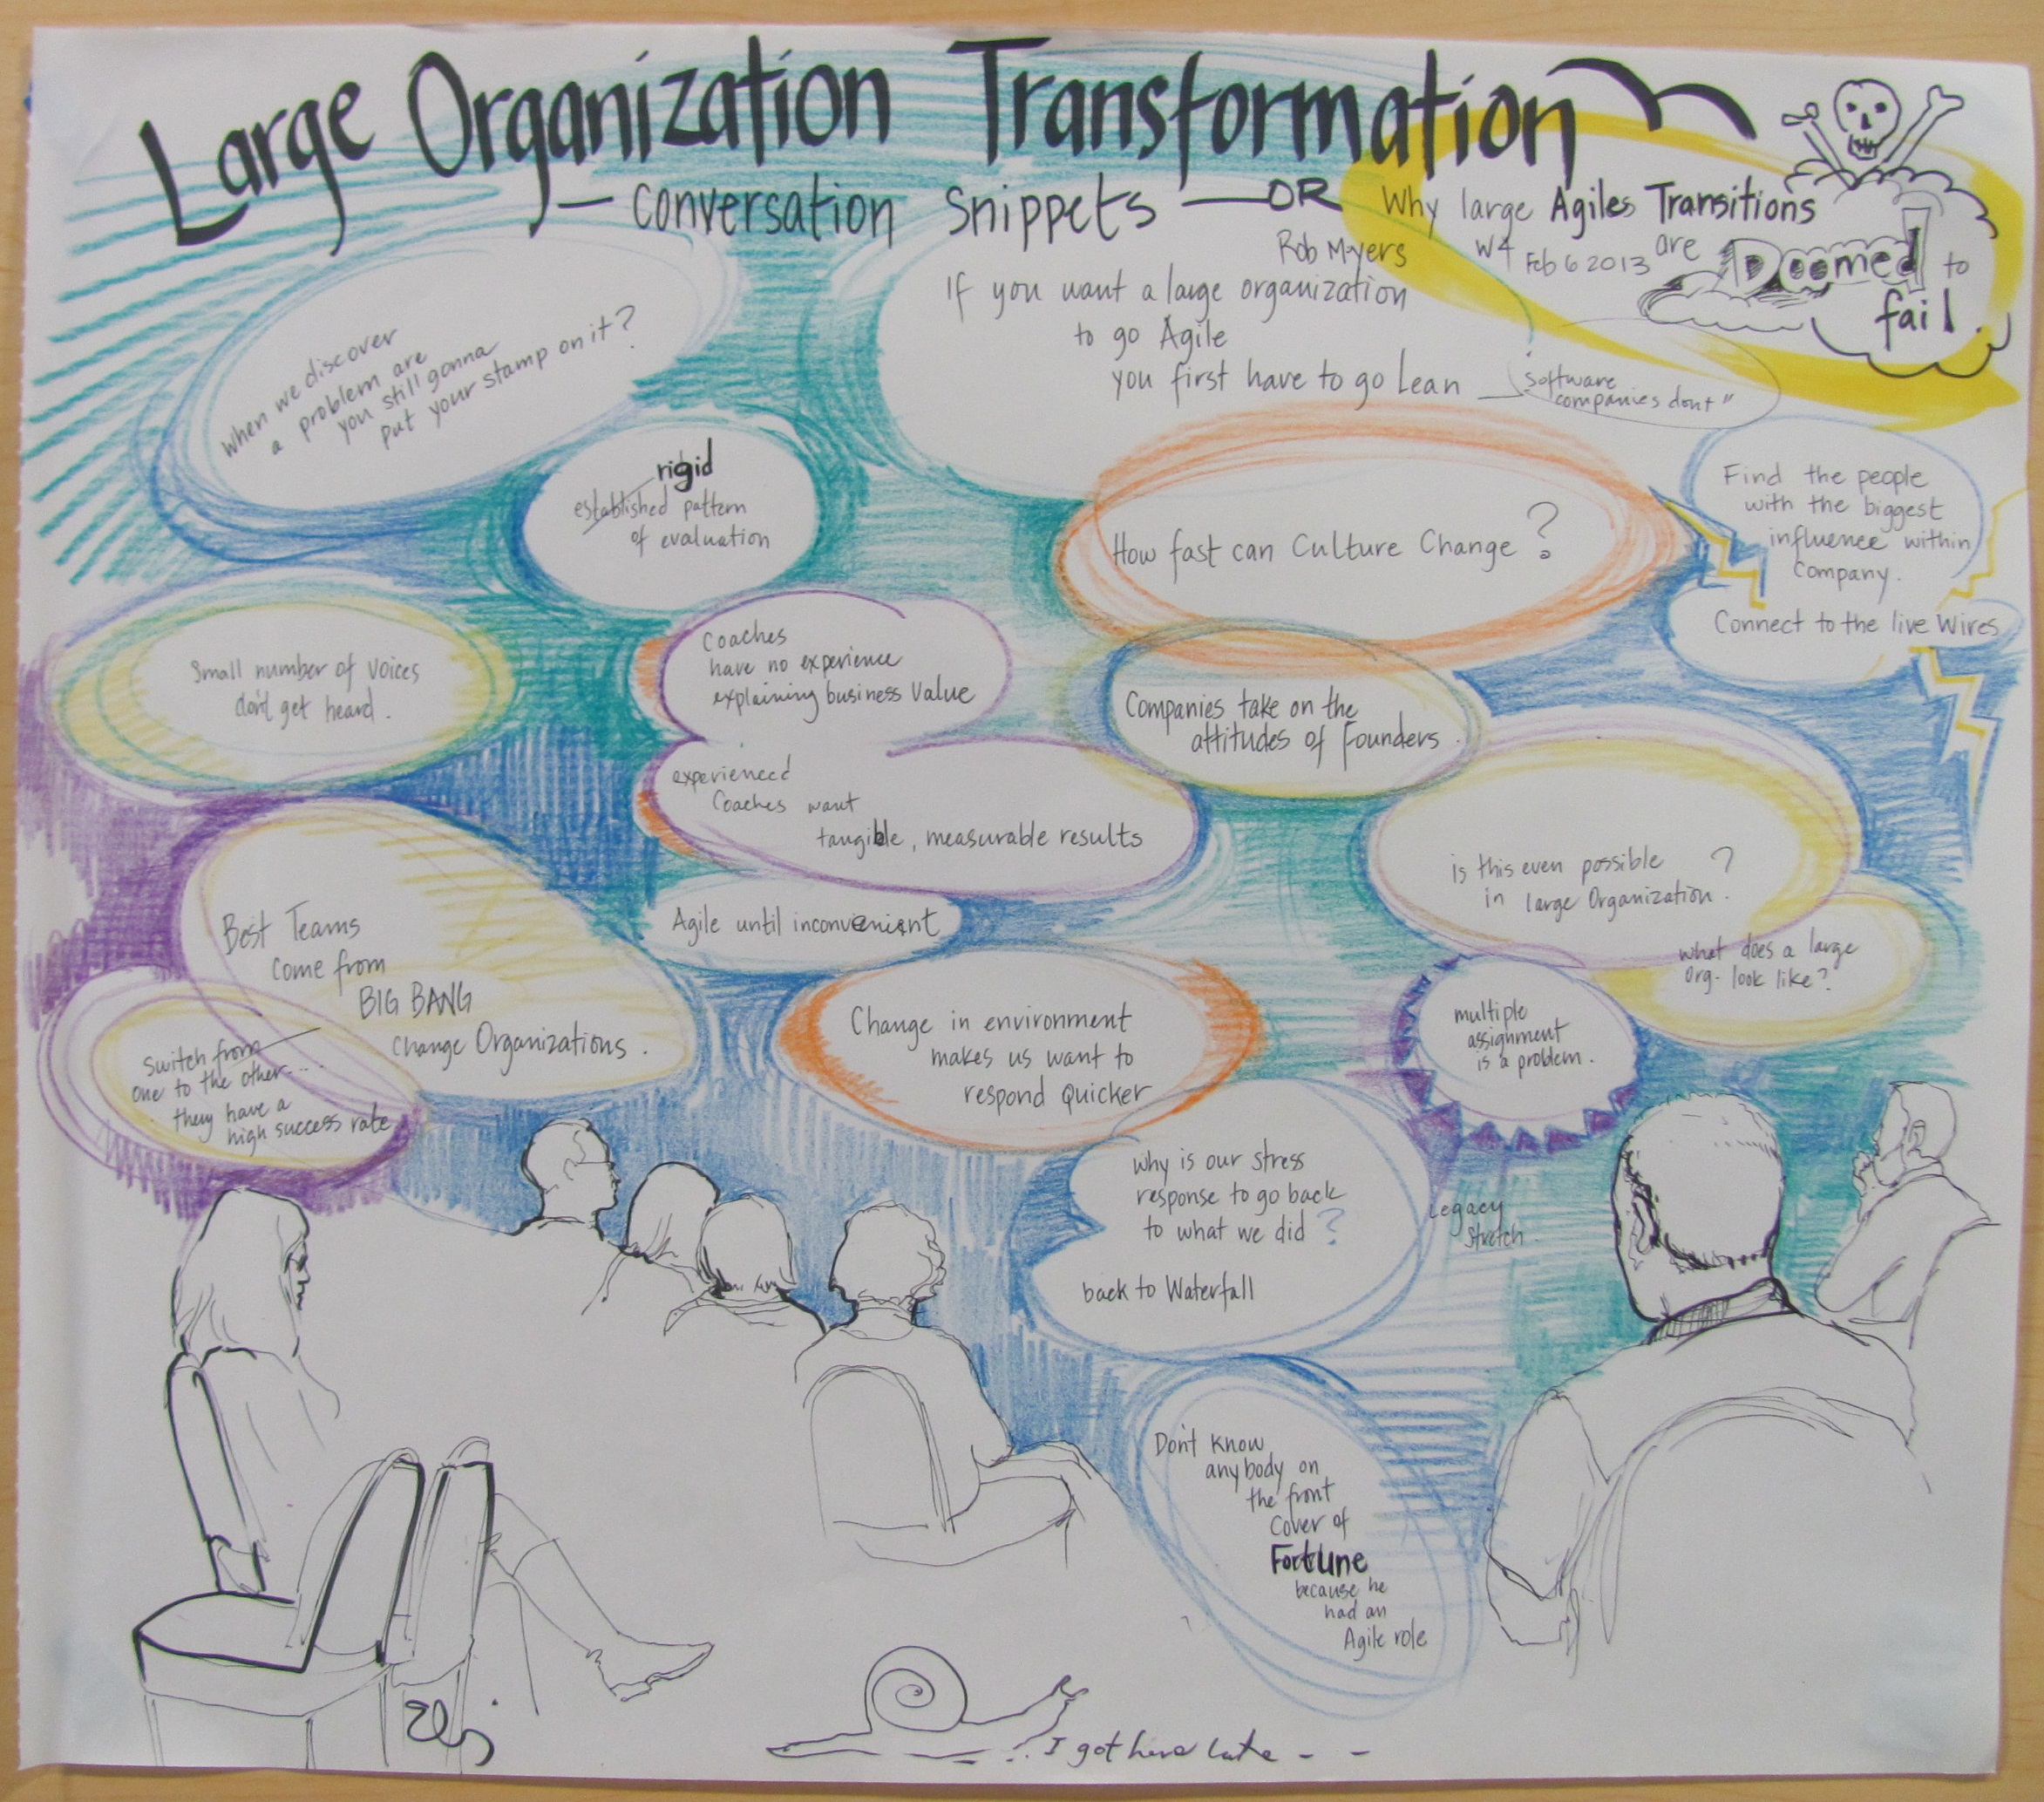 Large Organization Transformation
— Conversation Snippets — OR
Why large Agiles Transitions
are
Doomed to
fail.
Rob Myers
W4 Feb 6 2013
When we discover
a problem are
you still gonna
put your stamp on it?
If you want a large organization
to go Agile
you first have to go Lean
"software
companies dont"
rigid
established pattern
of evaluation
How fast can Culture Change?
Find the people
with the biggest
influence within
Company.
Connect to the live Wires
Small number of voices
don't get heard.
Coaches
have no experience
explaining business value
Companies take on the
attitudes of Founders.
experienced
Coaches want
tangible, measurable results
is this even possible
in large Organization?
what does a large
org- look like?
Agile until inconvenient
Best Teams
come from
BIG BANG
change Organizations.
Switch from
one to the other....
they have a
high success rate
Change in environment
makes us want to
respond quicker
multiple
assignment
is a problem.
Why is our stress
response to go back
to what we did?
back to Waterfall
Legacy
Stretch
Don't know
anybody on
the front
Cover of
Fortune
because he
had an
Agile role
I got here late - -